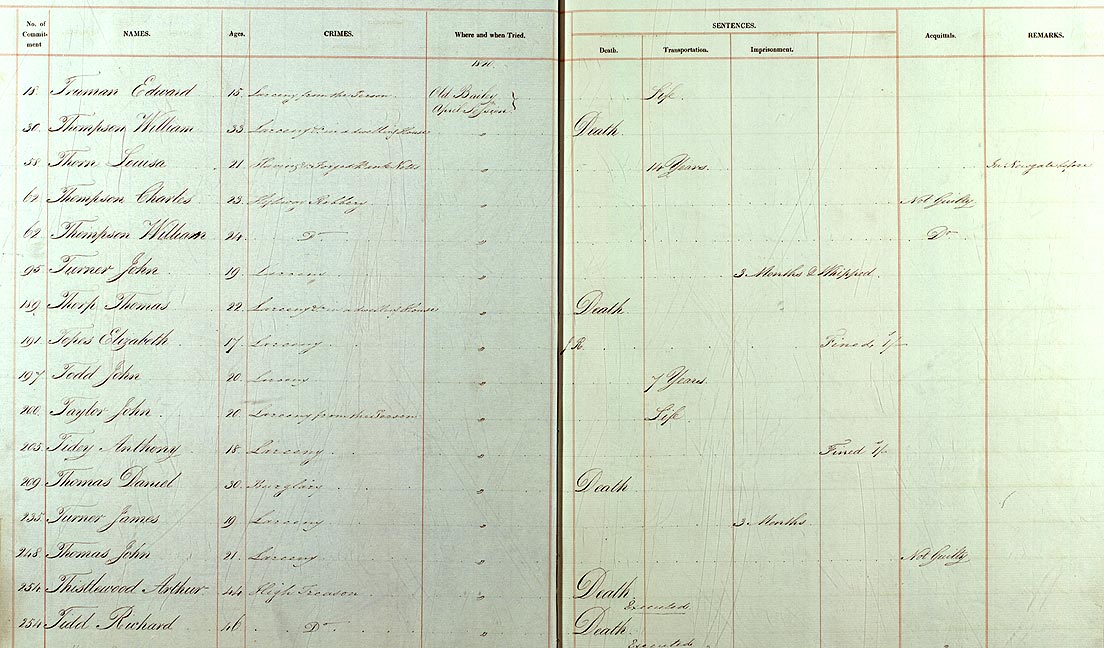 No. of Commit-ment NAMES. Ages. CRIMES. Where and when Tried. SENTENCES. Acquittals. REMARKS.
Death. Transportation. Imprisonment.
1820.
18 Truman Edward 15 Larceny from the Person Old Bailey April Session Life
30 Thompson William 33 Larceny &c in a dwelling House " Death
58 Thorn Louisa 21 Having Forged Bank Notes " 14 Years In Newgate before
62 Thompson Charles 23 Highway Robbery " Not Guilty
62 Thompson William 24 Do " Do
95 Turner John 19 Larceny " 3 Months & Whipped
189 Thorp Thomas 22 Larceny &c in a dwelling House " Death
191 Elizabeth 17 Larceny " Fined 1/-
197 Todd John 20 Larceny " 7 Years
200 Taylor John 20 Larceny from the Person " Life
205 Tidey Anthony 18 Larceny " Fined 1/-
209 Thomas Daniel 30 Burglary " Death
235 Turner James 19 Larceny " 3 Months
248 Thomas John 21 Larceny " Not Guilty
254 Thistlewood Arthur 44 High Treason " Death Executed
254 Tidd Richard 46 Do " Death Executed